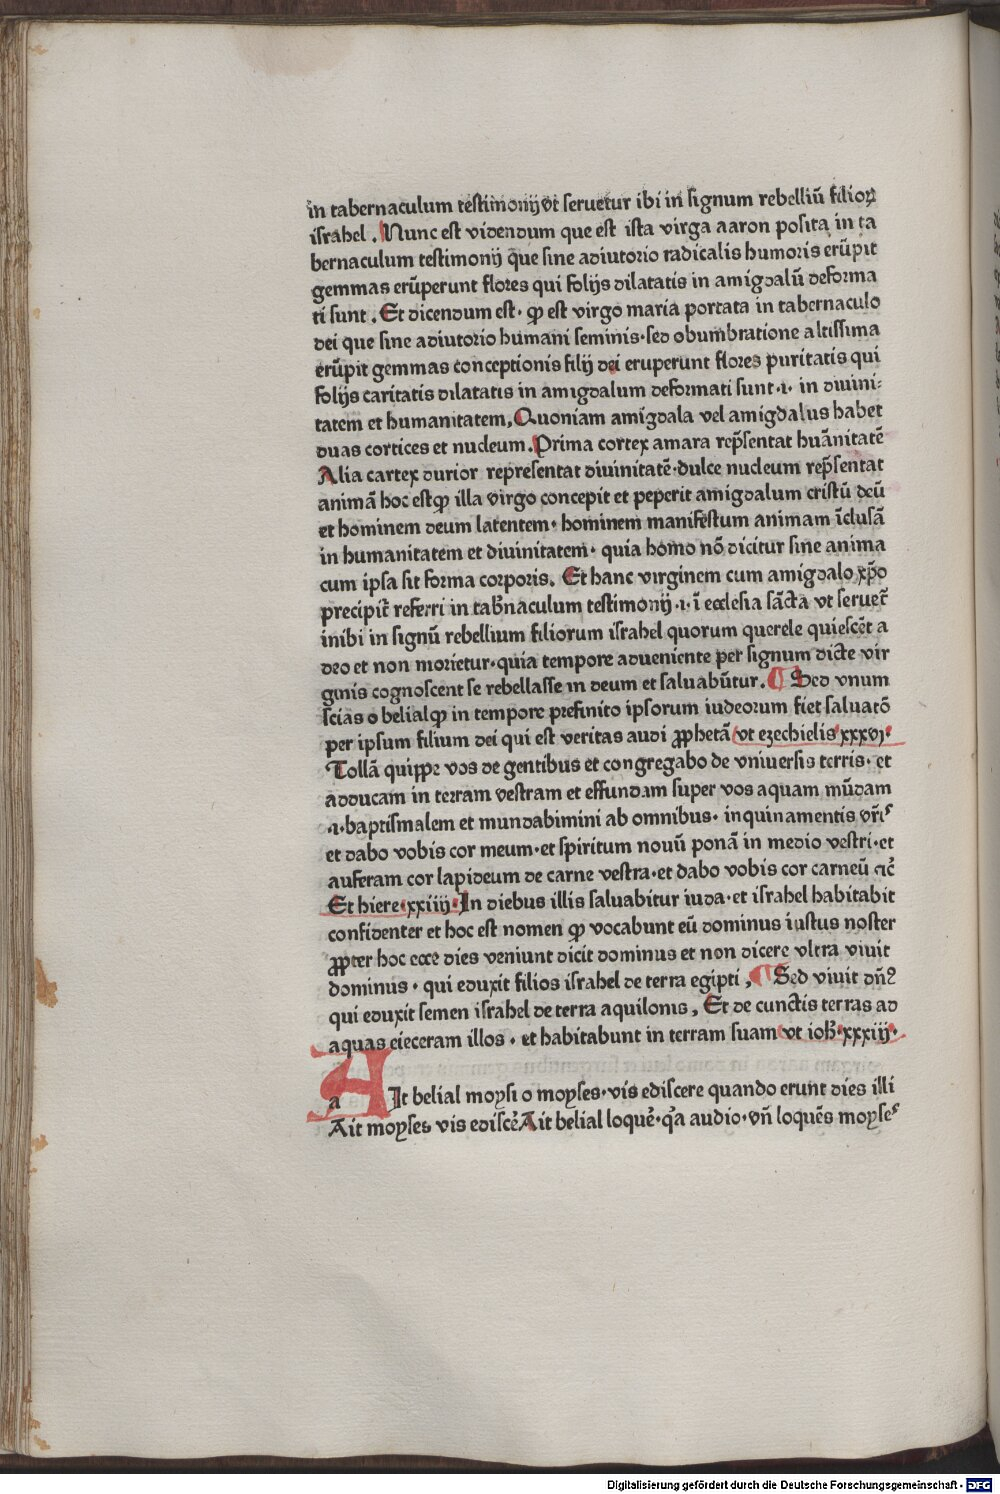 in tabernaculum testimonij vt seruetur ibi in signum rebelliū filioꝝ
israhel . Nunc est videndum que est ista virga aaron posita in ta
bernaculum testimonij que sine adiutorio radicalis humoris erūpit
gemmas erūperunt flores qui folijs dilatatis in amigdalū deforma
ti sunt . Et dicendum est· ꝙ est virgo maria portata in tabernaculo
dei que sine adiutorio humani seminis·sed obumbratione altissima
erūpit gemmas conceptionis filij dei eruperunt flores puritatis qui
folijs caritatis dilatatis in amigdalum deformati sunt·i· in diuini⸗
tatem et humanitatem, Quoniam amigdala vel amigdalus habet
duas cortices et nucleum. Prima cortex amara rep̄sentat huānitatē
Alia cartex durior representat diuinitatē·dulce nucleum rep̄sentat
animā hoc estꝙ illa virgo concepit et peperit amigdalum cristū deū
et hominem deum latentem· hominem manifestum animam īclusā
in humanitatem et diuinitatem· quia homo nō dicitur sine anima
cum ipsa sit forma corporis. Et hanc virginem cum amigdalo xp̄o
precipit̄ referri in tab̄naculum testimonij ·i· ī ecclesia sācta vt seruet̄
inibi in signū rebellium filiorum israhel quorum querele quiescēt a
deo et non morietur·quia tempore adueniente per signum dicte vir
ginis cognoscent se rebellasse in deum et saluabūtur. ¶ Sed vnum
scias o belialꝙ in tempore prefinito ipsorum iudeorum fiet saluatō
per ipsum filium dei qui est veritas audi ꝓphetā vt ezechielis xxxvj·
Tollā quippe vos de gentibus et congregabo de vniuersis terris· et
adducam in terram vestram et effundam super vos aquam mūdam
·i·baptismalem et mundabimini ab omnibus· inquinamentis vr̄is
et dabo vobis cor meum·et spiritum nouū ponā in medio vestri·et
auferam cor lapideum de carne vestra·et dabo vobis cor carneū ⁊c̄
Et hiere·xxiiij·In diebus illis saluabitur iuda·et israhel habitabit
confidenter et hoc est nomen ꝙ vocabunt eū dominus iustus noster
ꝓpter hoc ecce dies veniunt dicit dominus et non dicere vltra viuit
dominus · qui eduxit filios israhel de terra egipti , ¶ Sed viuit dn̄s
qui eduxit semen israhel de terra aquilonis, Et de cunctis terras ad
aquas eieceram illos · et habitabunt in terram suam vt iob̄·xxxiij·
AIt belial moysi o moyses·vis ediscere quando erunt dies illi
Ait moyses vis ediscē Ait belial loquē·q̄a audio·vn̄ loquēs moyses
Digitalisierung gefördert durch die Deutsche Forschungsgemeinschaft - DFG